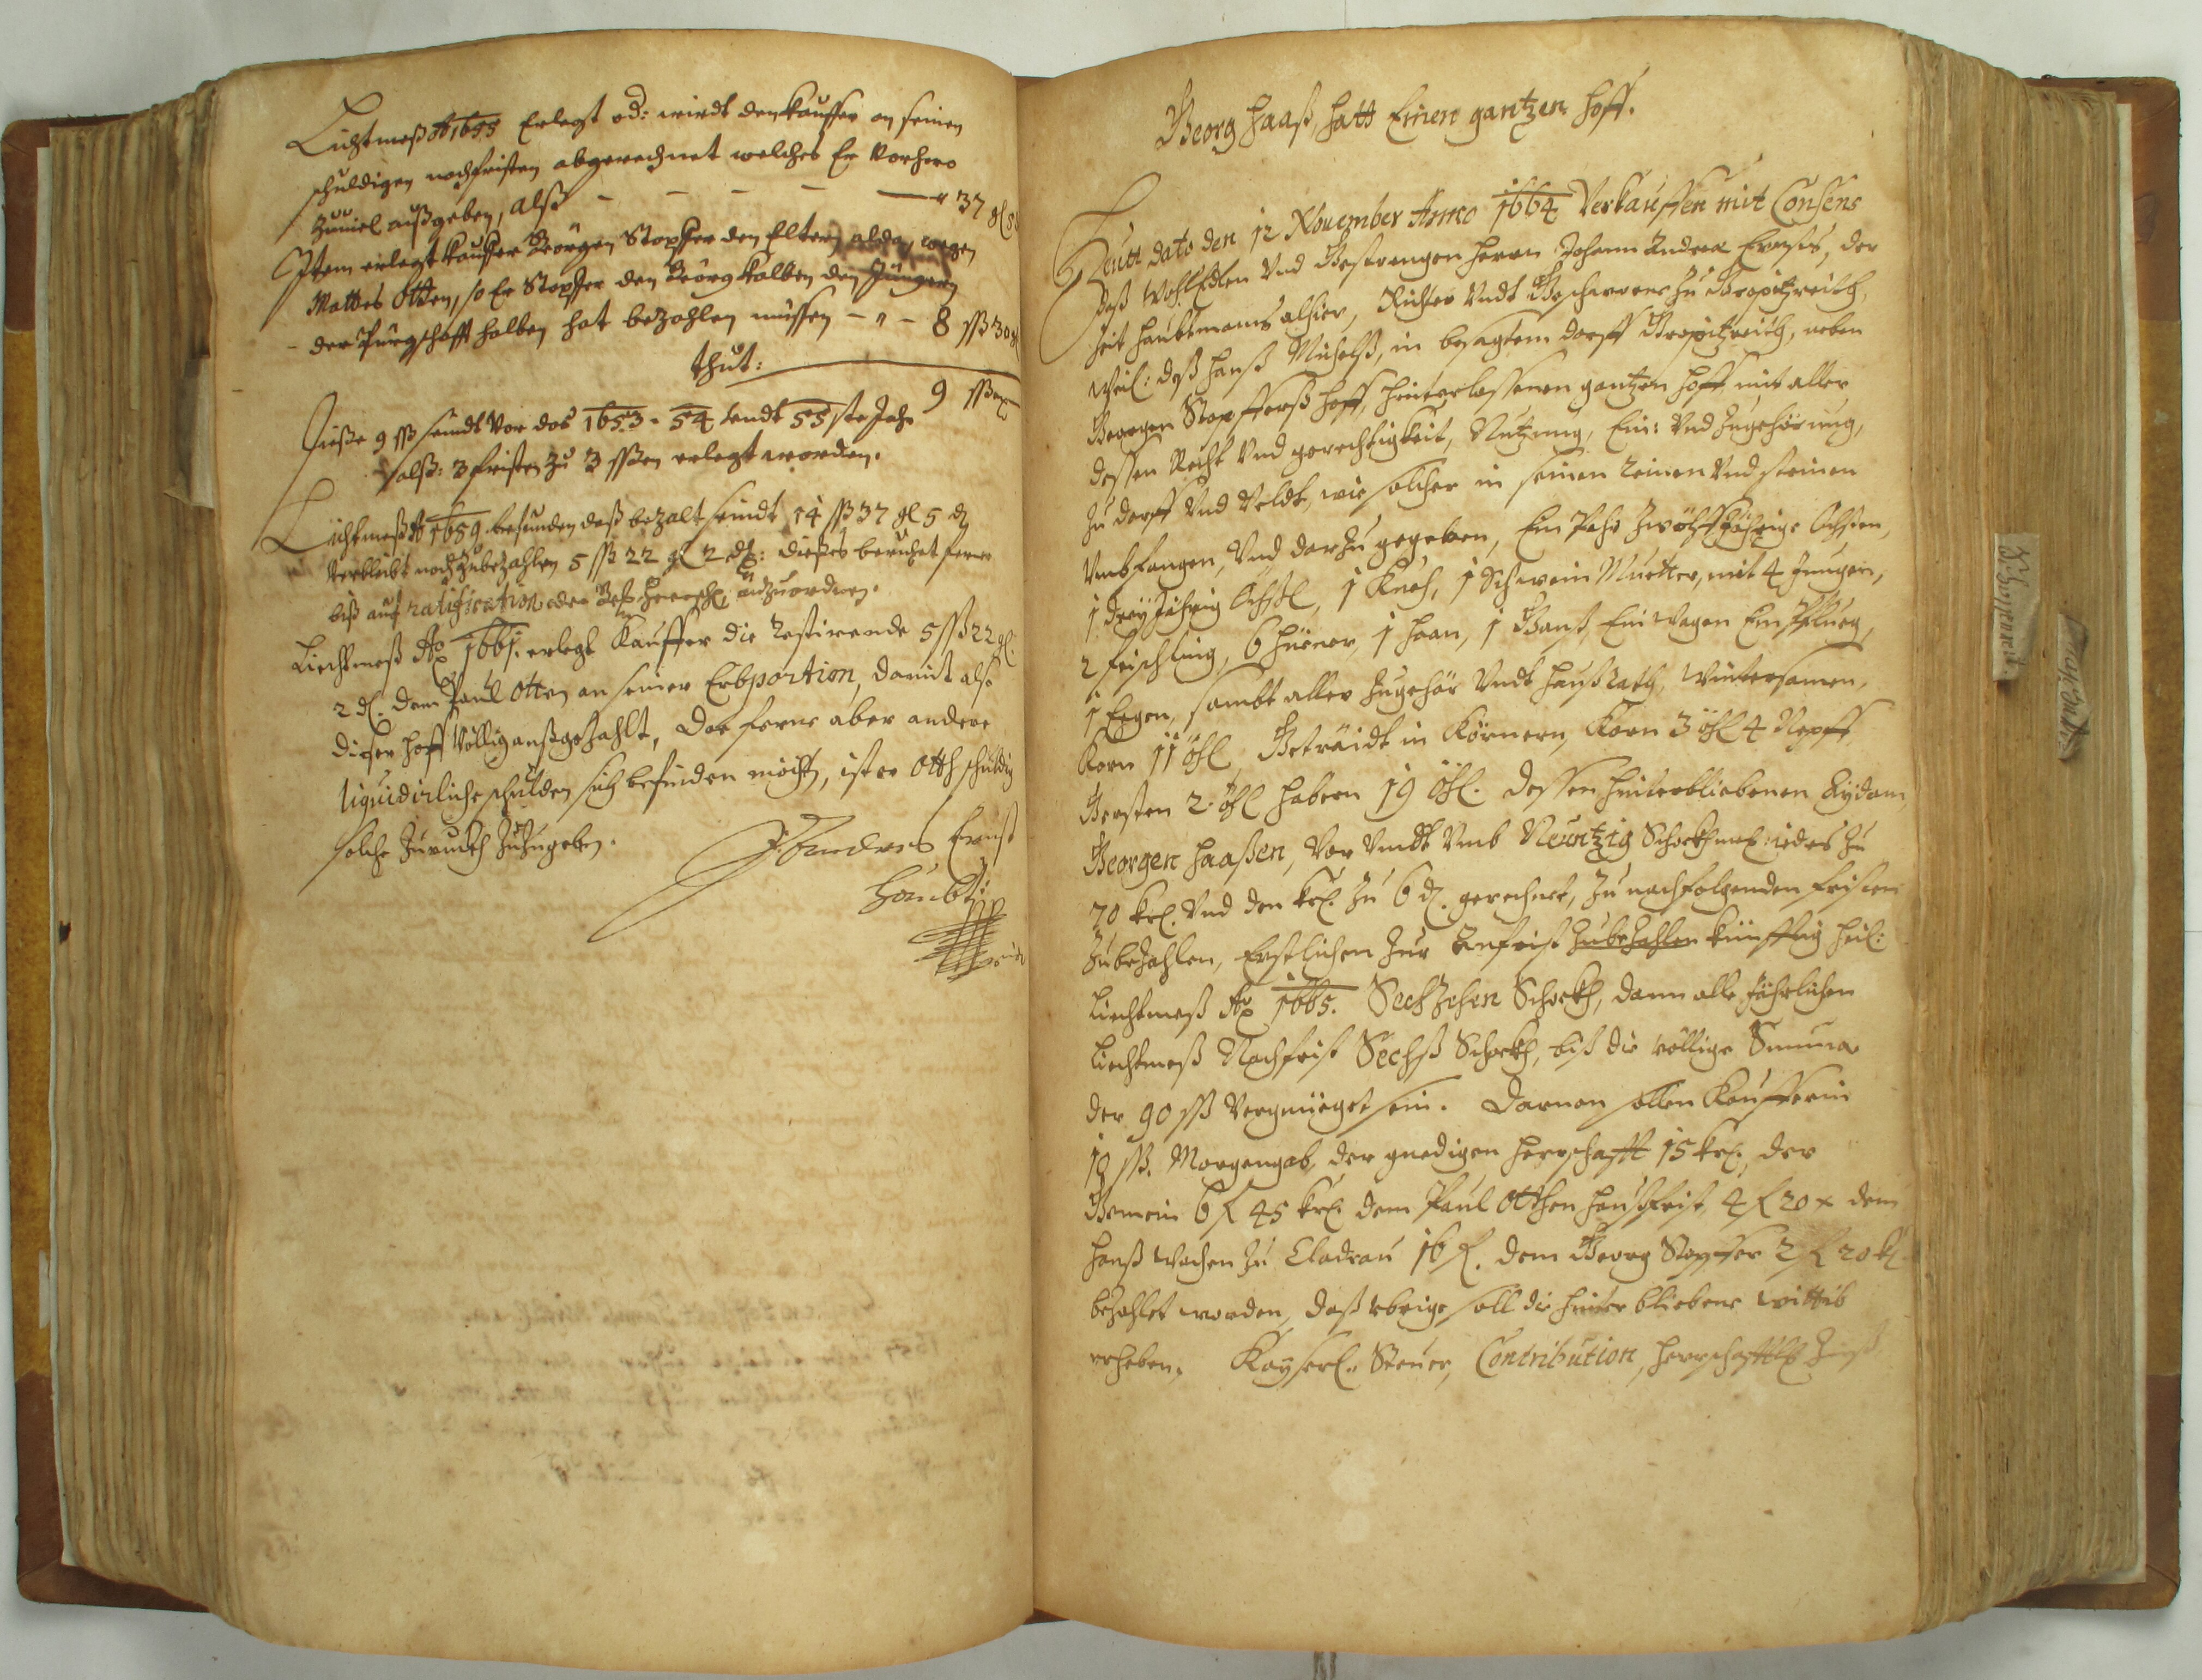 Liechtmeß Ao 1655 Erlegt od: wirdt dem Kauffer an seinen
schuldigen nachfristen abgerechnet welches Er Vorhero
zuuiel außgeben, alß — — — — 37 gl 5
Item erlegt Kauffer Beörgen Stopffer den Eltern wegen
Mattes Otten, so Er Stopffer den Beörg Kalben den Jüngern
der Pürgschafft halben hat bezahlen müssen — " — 8 ßß 30 gl
thut: 9 ßß
Diese 9 ßß seindt Vor das 1653 - 54 undt 55ste Jahr
alß: 3 fristen zu 3 ßßen erlegt worden.
Liechtmeß Ao 1659 befunden daß bezalt seindt 14 ßß 37 gl 5 d
Verbleibt noch zubezahlen 5 ßß 22 gl 2 d: dieses beruhet ferner
biß auf ratification der anzuordnen.
Liechtmeß Ao 1661. erlegt Kauffer die restirende 5 ßß 22 gl.
2 d. dem Paul Otten an seiner Erbportion, damit also
dieser hoff Völlig außgezahlt, Da ferne aber andere
liquidirliche schulden sich befinden möcht, ist er Otth schuldig
solche zuruckh zuzugeben.
J: Andreas Ernst
Haubt:
Georg Haaß, hatt Einen gantzen hoff.
Heutt dato den 12 November Anno 1664 Verkauffen mit Consens
deß WohlEdlen Vnd Gestrengen herrn Johann Andreæ Ernsts, der
Zeit haubtmans alhier, Richter Vndt Geschworne zu Gropitzreith,
weil: deß Hanß Michelß, in besagtem dorff Gropitzreith, neben
Georgen Stopfferß hoff, hinterlassenen gantzen hoff mit aller
dessen Recht Vnd gerechtigkeit, Nutzung, Ein: Vnd Zugehörung,
zu dorff Vnd Veldt, wie solcher in seinen reinen Vnd steinen
Vmbfangen, Vnd darzu gegeben, Ein Pahr zwölffjährige Ochsen,
1 dreyjährig Öchßl, 1 Kueh, 1 Schwein Muetter, mit 4 Jungen,
2 frischling, 6 hüener, 1 haan, 1 Ganß, Ein Wagen Ein Pflueg,
1 Egen, sambt aller Zugehör Vndt haußrath, Wintersamen,
Korn 11 Gestraidt in Körnern, Korn 3 4 Napff
Gersten 2. habern 19 dessen hinterbliebenen Eydam
Georgen Haaßen, Vor Vndt Vmb Neuntzig Schockh iedes zu
70 kr. Vnd den kr. zu 6 d. gerechnet, zu nachfolgenden fristen
zubezahlen, Erstlichen zur Anfrist zubezahlen künfftig heil:
Liechtmeß Ao 1665. Sechzehen Schockh, dann alle Jährlichen
Liechtmeß Nachfrist Sechß Schockh, biß die völlige Summa
der 90 ßß Vergnüeget sein. Daruon sollen Kaufferin
10 ßß. Morgengab, der gnedigen herrschafft 15 kr., der
Gemein 6 f 45 kr. dem Paul Otthen haußfrist, 4 f 20 x dem
Hanß Wachen zu Cladrau 16 f. dem Georg Stopffer 2 f 20 k.
bezahlet worden, daß vbrige soll die hinterbliebene wittib
erheben. Kayserl. Steuer, Contribution, herrschafftl. Zinß